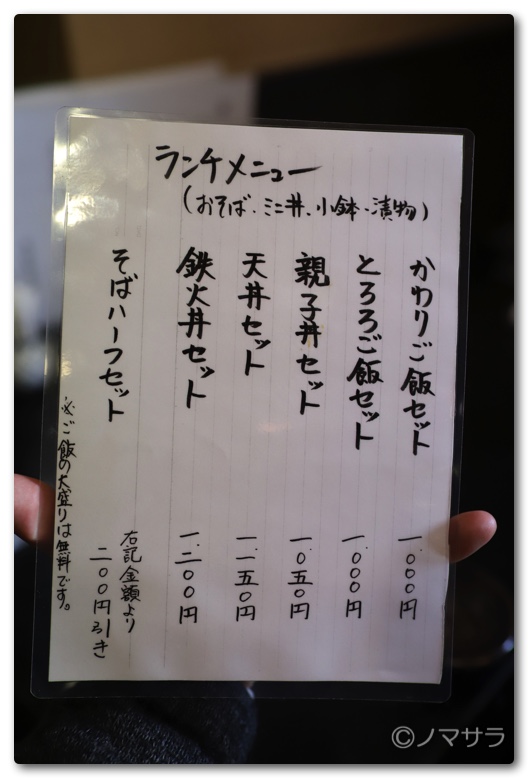 ランチメニュー
(おそば、ミニ丼、小鉢、漬物)
かわりご飯セット 一、〇〇〇円
とろろご飯セット 一、〇〇〇円
親子丼セット 一、〇五〇円
天丼セット 一、一五〇円
鉄火丼セット 一、二〇〇円
そばハーフセット 右記金額より
二〇〇円引き
※ご飯の大盛りは無料です。
©ノマサラ